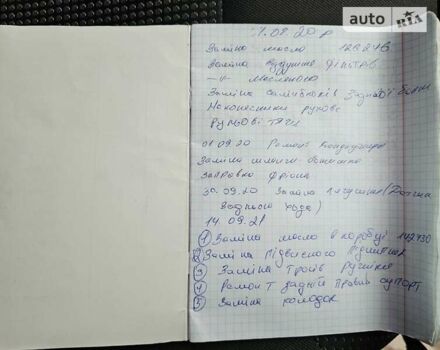 auto RIA
.08.20 р
Заміна масло 128246
Заміна воздушне фільтрів
-//- масленого
Заміна салінблоків Задньої балки
Наконечники рулове
Рульові тяги
01.09.20 Ремонт Кондиціонера
Заміна шланги
Заправка фріона
30.09.20 Заміна (Датчик
Заднього хода)
14.09.21
1 Заміна масло в коробці 142730
2 Заміна Підвисного Підшипник
3 Заміна тросів ручніка
4 Ремонт задній Правий супорт
5 Заміна колодок